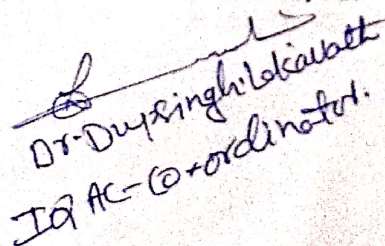 Dr. Duysingh. Lakavath
IQAC-Co-ordinator.